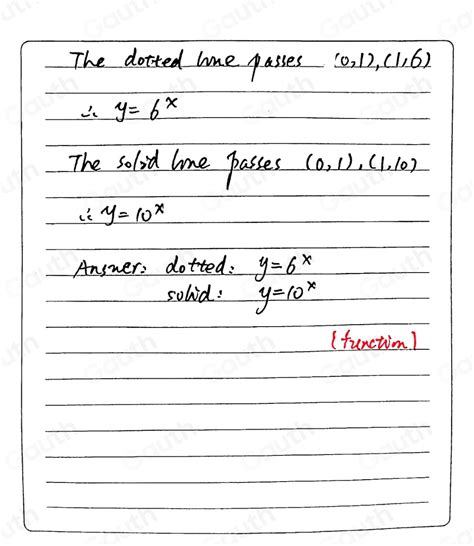 The dotted line passes (0,1), (1,6)
∴ y=6ˣ
The solid line passes (0,1), (1,10)
∴ y=10ˣ
Answer: dotted: y=6ˣ
solid: y=10ˣ
[function]